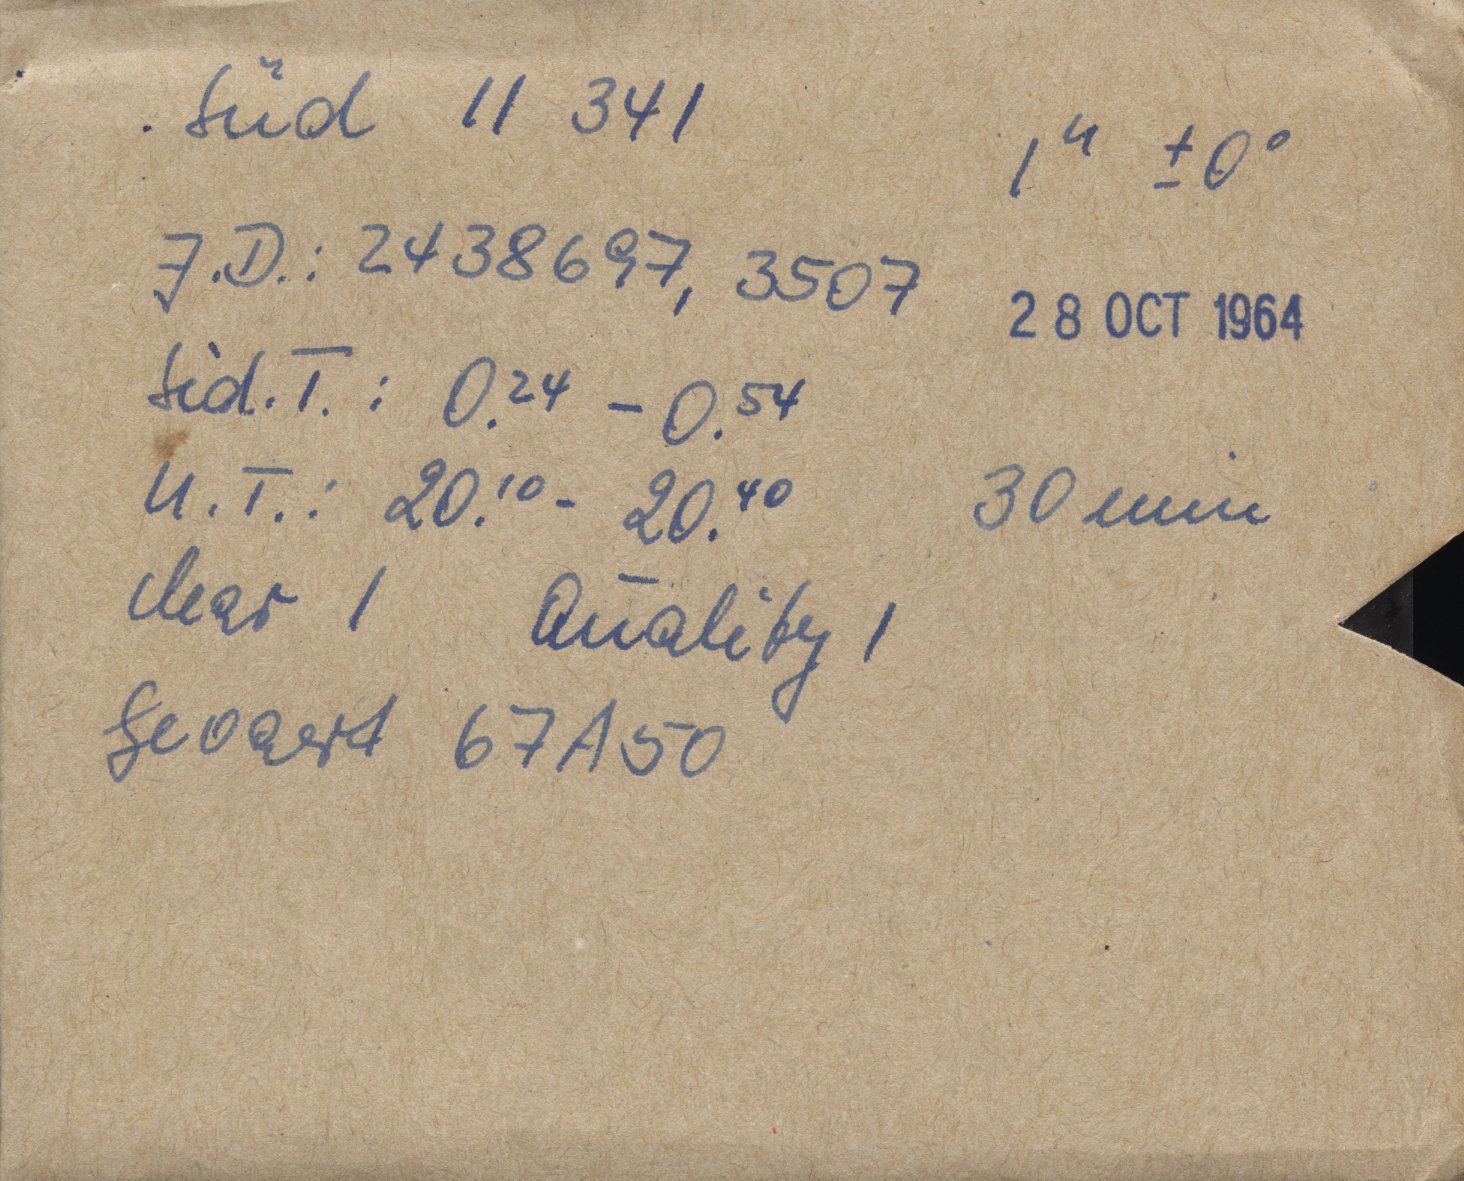 Süd 11 341
1ʰ ±0°
J.D.: 2438697,3507
28 OCT 1964
Sid.T.: 0.²⁴ – 0.⁵⁴
U.T.: 20.¹⁰ - 20.⁴⁰ 30 min
clear 1 Quality 1
Gevaert 67A50